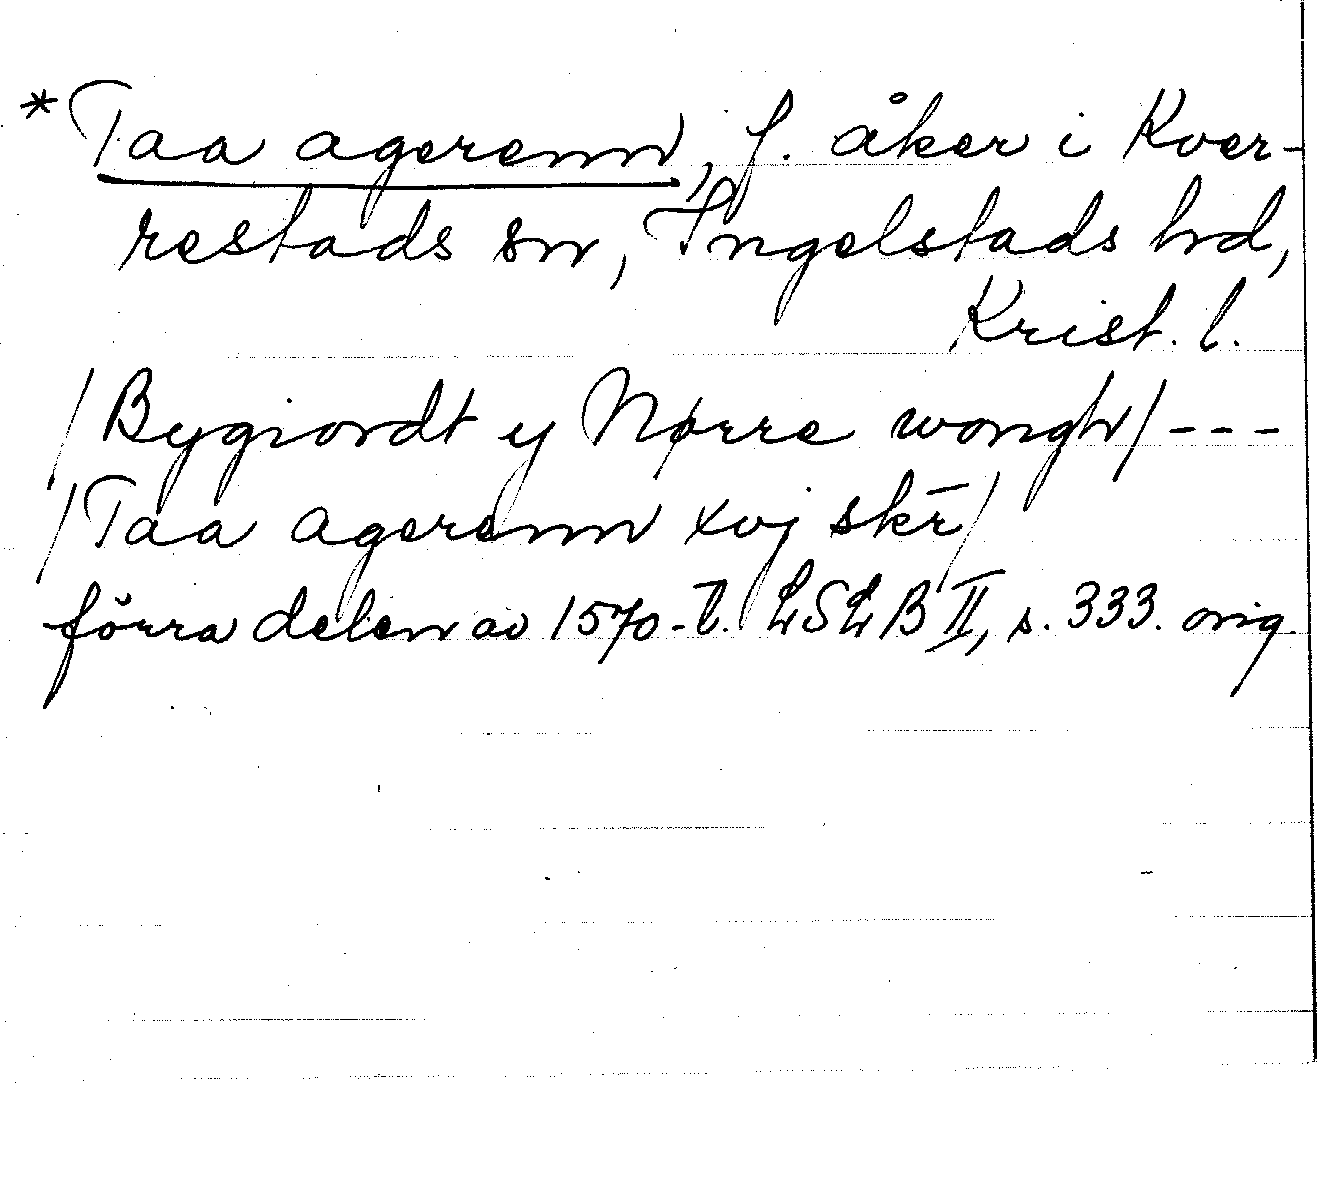 *Taa agerenn, f. åker i Kver-
restads sn, Ingelstads hd,
Krist. l.
/Bygiordt y Nørre wongh/ ---
/Taa agerenn xvj skē/
förra delen av 1570-t. LSLB II, s. 333. orig